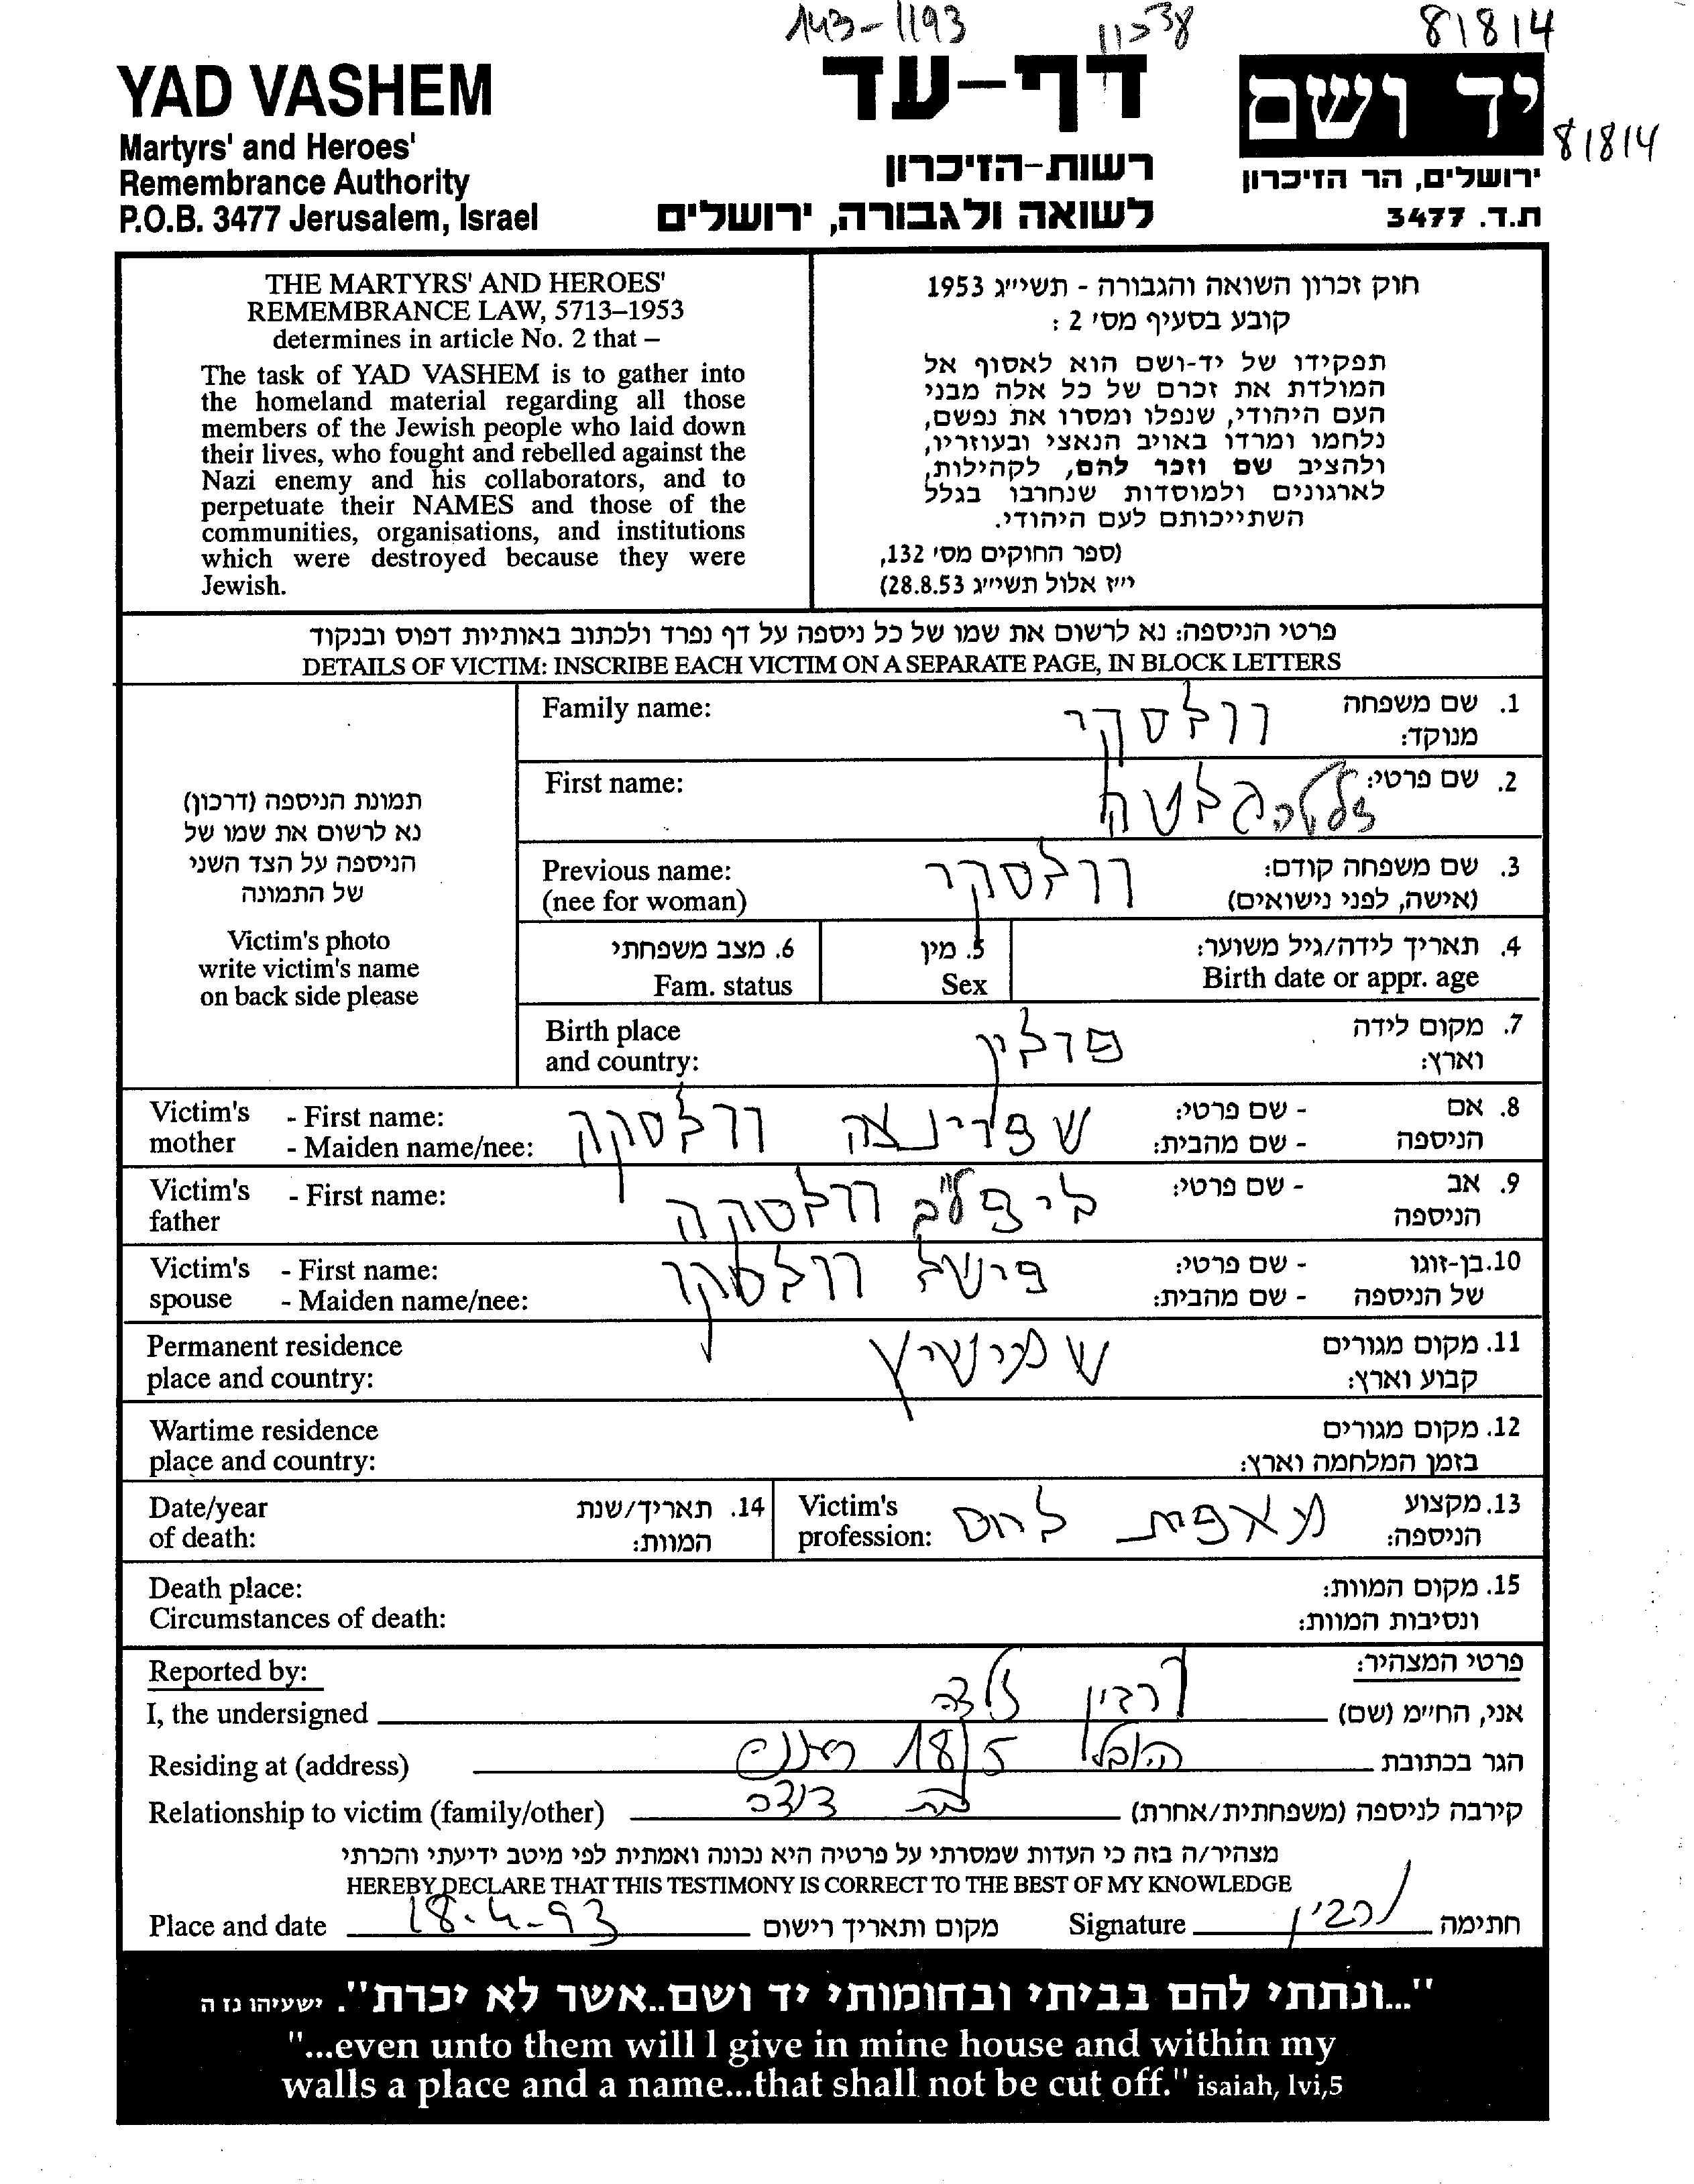 143-1193
עדכון
81814
YAD VASHEM
Martyrs' and Heroes'
Remembrance Authority
P.O.B. 3477 Jerusalem, Israel
דף-עד
רשות-הזיכרון
לשואה ולגבורה, ירושלים
יד ושם
81814
ירושלים, הר הזיכרון
ת.ד. 3477
THE MARTYRS' AND HEROES'
REMEMBRANCE LAW, 5713–1953
determines in article No. 2 that –
The task of YAD VASHEM is to gather into
the homeland material regarding all those
members of the Jewish people who laid down
their lives, who fought and rebelled against the
Nazi enemy and his collaborators, and to
perpetuate their NAMES and those of the
communities, organisations, and institutions
which were destroyed because they were
Jewish.
חוק זכרון השואה והגבורה - תשי״ג 1953
קובע בסעיף מס׳ 2 :
תפקידו של יד-ושם הוא לאסוף אל
המולדת את זכרם של כל אלה מבני
העם היהודי, שנפלו ומסרו את נפשם,
נלחמו ומרדו באויב הנאצי ובעוזריו,
ולהציב שם וזכר להם, לקהילות,
לארגונים ולמוסדות שנחרבו בגלל
השתייכותם לעם היהודי.
(ספר החוקים מס׳ 132,
י״ז אלול תשי״ג 28.8.53)
פרטי הניספה: נא לרשום את שמו של כל ניספה על דף נפרד ולכתוב באותיות דפוס ובנקוד
DETAILS OF VICTIM: INSCRIBE EACH VICTIM ON A SEPARATE PAGE, IN BLOCK LETTERS
תמונת הניספה (דרכון)
נא לרשום את שמו של
הניספה על הצד השני
של התמונה
Victim's photo
write victim's name
on back side please
Family name: וולסקי 1. שם משפחה
מנוקד:
First name: 2. שם פרטי:
Previous name: וולסקי 3. שם משפחה קודם:
(nee for woman) (אישה, לפני נישואים)
6. מצב משפחתי 5. מין 4. תאריך לידה/גיל משוער:
Fam. status Sex Birth date or appr. age
Birth place פולין 7. מקום לידה
and country: וארץ:
Victim's - First name: שפרינצה וולסקה 8. אם - שם פרטי:
mother - Maiden name/nee: הניספה - שם מהבית:
Victim's - First name: וולסקה 9. אב - שם פרטי:
father הניספה
Victim's - First name: פישל וולסקי 10. בן-זוגו - שם פרטי:
spouse - Maiden name/nee: של הניספה - שם מהבית:
Permanent residence 11. מקום מגורים
place and country: קבוע וארץ:
Wartime residence 12. מקום מגורים
place and country: בזמן המלחמה וארץ:
Date/year 14. תאריך/שנת Victim's מאפית לחם 13. מקצוע
of death: המוות: profession: הניספה:
Death place: 15. מקום המוות:
Circumstances of death: ונסיבות המוות:
Reported by: פרטי המצהיר:
I, the undersigned אני, החיימ (שם)
Residing at (address) 18/5 הגר בכתובת
Relationship to victim (family/other) בת דודה קירבה לניספה (משפחתית/אחרת)
מצהיר/ה בזה כי העדות שמסרתי על פרטיה היא נכונה ואמתית לפי מיטב ידיעתי והכרתי
HEREBY DECLARE THAT THIS TESTIMONY IS CORRECT TO THE BEST OF MY KNOWLEDGE
Place and date 18.4-93 מקום ותאריך רישום Signature חתימה
"...ונתתי להם בביתי ובחומותי יד ושם..אשר לא יכרת". ישעיהו נז ה
"...even unto them will I give in mine house and within my
walls a place and a name...that shall not be cut off." isaiah, lvi,5